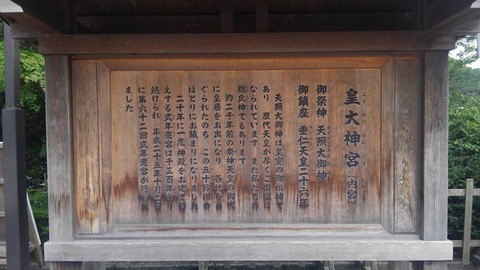 皇大神宮（内宮）
御祭神 天照大御神
御鎮座 垂仁天皇二十六年
天照大御神は皇室の御祖神で
あり 歴代天皇が厚くご崇敬に
なられています また私たち の
総氏神でもあります
約二千年前の崇神天皇の御代
に皇居をお出になり 各地を
めぐられたのち この五十鈴川の
ほとりにお鎮まりになりました
二十年に一度神殿をお建て替
えする式年遷宮は千三百年
続けられ 平成二十五年十月二日
に第六十二回式年遷宮が行われ
ました